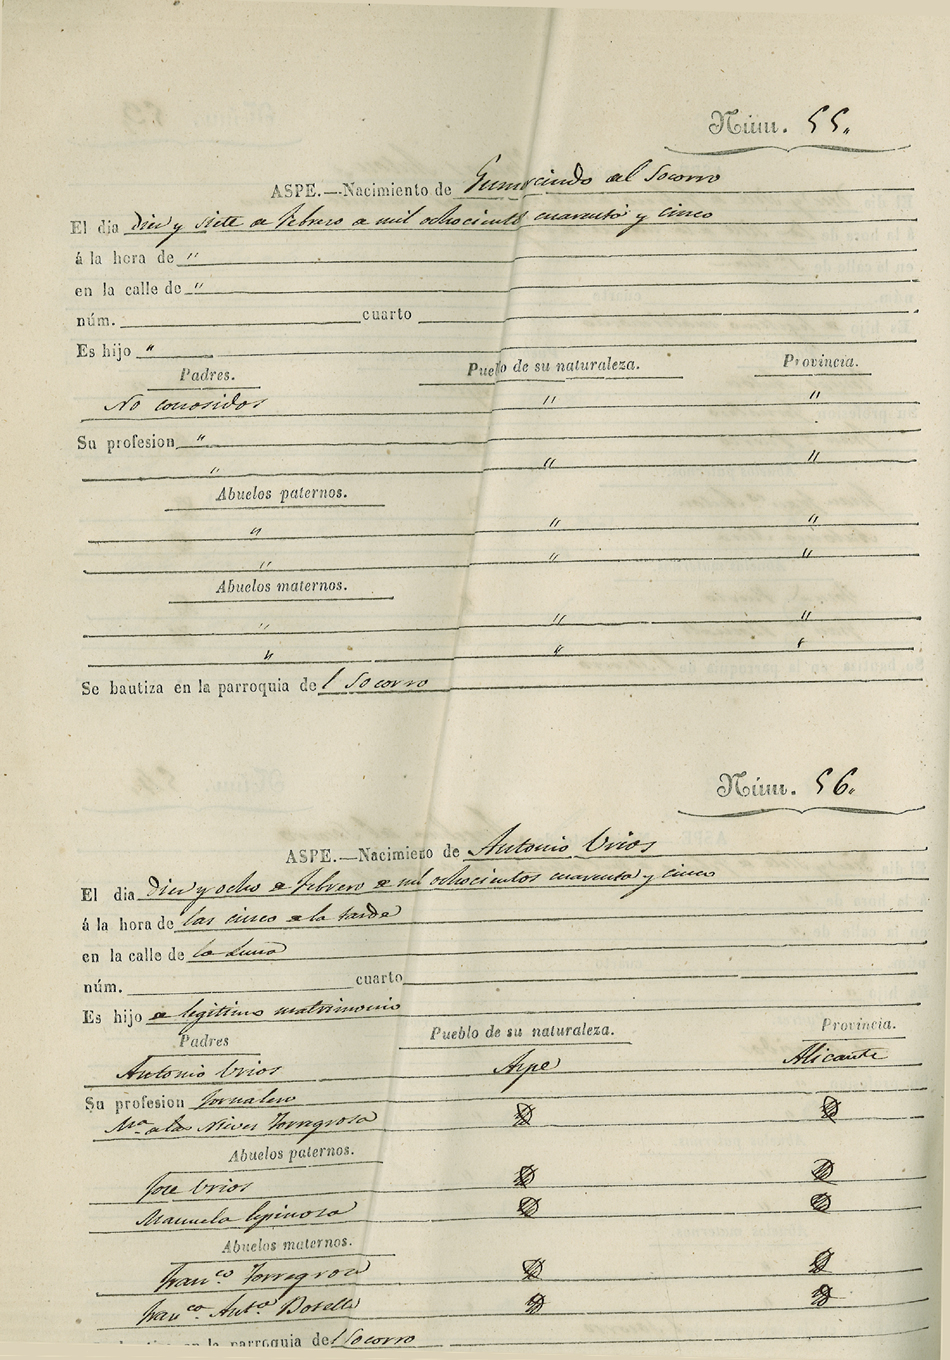 Núm. 55.
ASPE.—Nacimiento de Gumercindo del Socorro
El dia diez y siete de febrero de mil ochocientos cuarenta y cinco
á la hora de "
en la calle de "
núm. cuarto
Es hijo "
Padres. Pueblo de su naturaleza. Provincia.
No conosidos " "
Su profesion "
" " "
Abuelos paternos.
" " "
" " "
Abuelos maternos.
" " "
" " "
Se bautiza en la parroquia del Socorro
Núm. 56.
ASPE.—Nacimiento de Antonio Urios
El dia diez y ocho de febrero de mil ochocientos cuarenta y cinco
á la hora de las cinco de la tarde
en la calle de la Luna
núm. cuarto
Es hijo de legitimo matrimonio
Padres Pueblo de su naturaleza. Provincia.
Antonio Urios Aspe Alicante
Su profesion Jornalero
Mª de las Nieves Torregrosa
Abuelos paternos.
Jose Urios
Manuela Espinosa
Abuelos maternos.
Franco Torregrosa
Franca Anta Botella
en la parroquia del Socorro